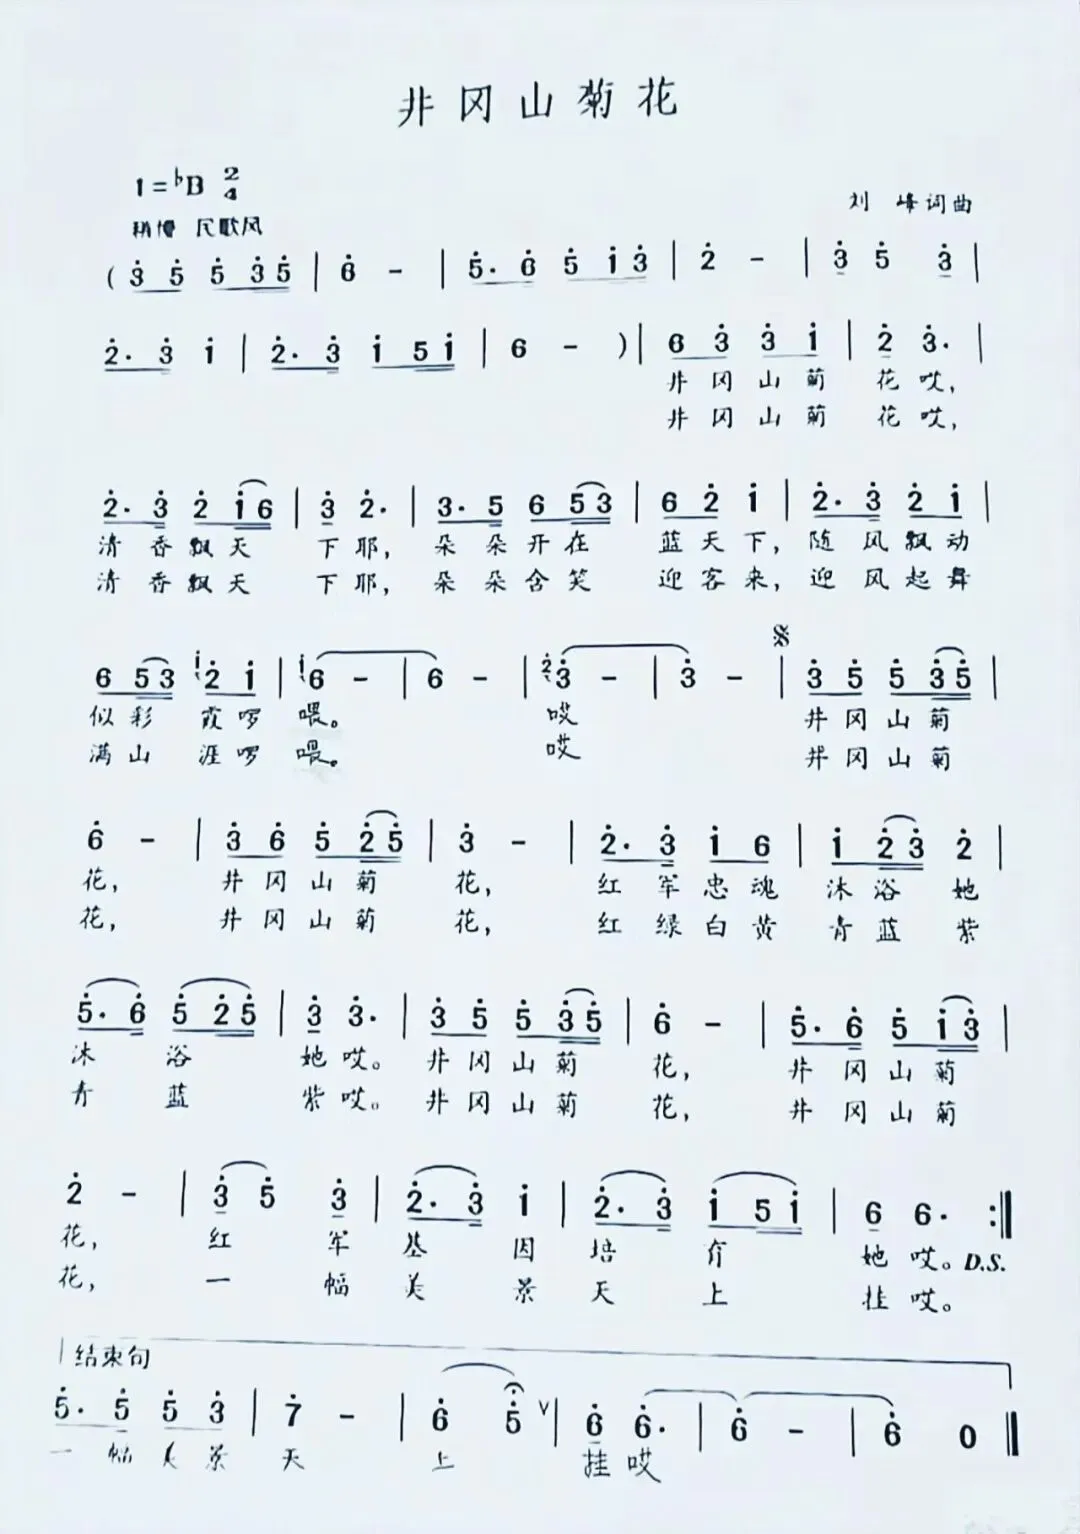 井冈山菊花
1=♭B 2/4
刘 峰词曲
稍慢 民歌风
(3̇ 5̇ 5̇ 3̇ 5̇ | 6̇ - | 5̇. 6̇ 5̇ 1̇ 3̇ | 2̇ - | 3̇ 5̇ 3̇ |
2̇. 3̇ 1̇ | 2̇. 3̇ 1̇ 5 1̇ | 6 - ) | 6 3̇ 3̇ 1̇ | 2̇ 3̇. |
井冈山菊 花哎,
井冈山菊 花哎,
2̇. 3̇ 2̇ 1̇ 6 | 3̇ 2̇. | 3. 5 6 5 3 | 6 2̇ 1̇ | 2̇. 3̇ 2̇ 1̇ |
清香飘天 下耶, 朵朵开在 蓝天下, 随风飘动
清香飘天 下耶, 朵朵含笑 迎客来, 迎风起舞
6 5 3 1̇ 2̇ 1̇ | 1̇ 6 - | 6 - | 2̇ 3̇ - | 3̇ - | 𝄋 3̇ 5̇ 5̇ 3̇ 5̇ |
似彩 霞啰 喂。 哎 井冈山菊
满山 涯啰 喂。 哎 井冈山菊
6̇ - | 3̇ 6̇ 5̇ 2̇ 5̇ | 3̇ - | 2̇. 3̇ 1̇ 6 | 1̇ 2̇ 3̇ 2̇ |
花, 井冈山菊 花, 红军忠魂 沐浴她
花, 井冈山菊 花, 红绿白黄 青蓝紫
5̇. 6̇ 5̇ 2̇ 5̇ | 3̇ 3̇. | 3̇ 5̇ 5̇ 3̇ 5̇ | 6̇ - | 5̇. 6̇ 5̇ 1̇ 3̇ |
沐 浴 她哎。 井冈山菊 花, 井冈山菊
青 蓝 紫哎。 井冈山菊 花, 井冈山菊
2̇ - | 3̇ 5̇ 3̇ | 2̇. 3̇ 1̇ | 2̇. 3̇ 1̇ 5 1̇ | 6 6. :‖
花, 红 军 基 因 培 育 她哎。 D.S.
花, 一 幅 美 景 天 上 挂哎。
结束句
5̇. 5̇ 5̇ 3̇ | 7̇ - | 6̇ 5̇ ∨ | 6̇ 6̇. | 6̇ - | 6̇ 0 ‖
一幅美景 天 上 挂哎